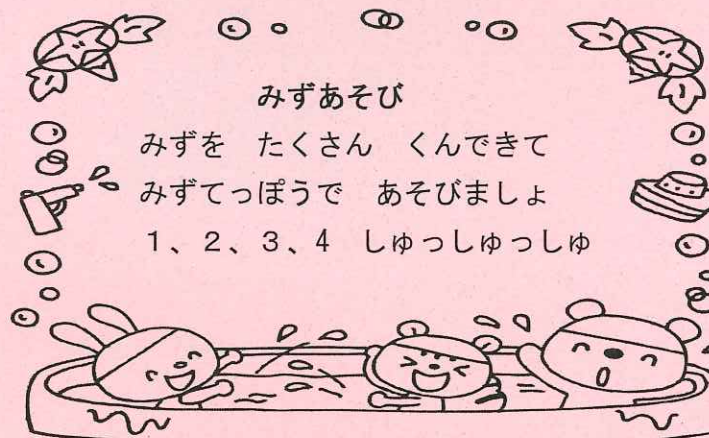 みずあそび
みずを　たくさん　くんできて
みずてっぽうで　あそびましょ
１、２、３、４　しゅっしゅっしゅ